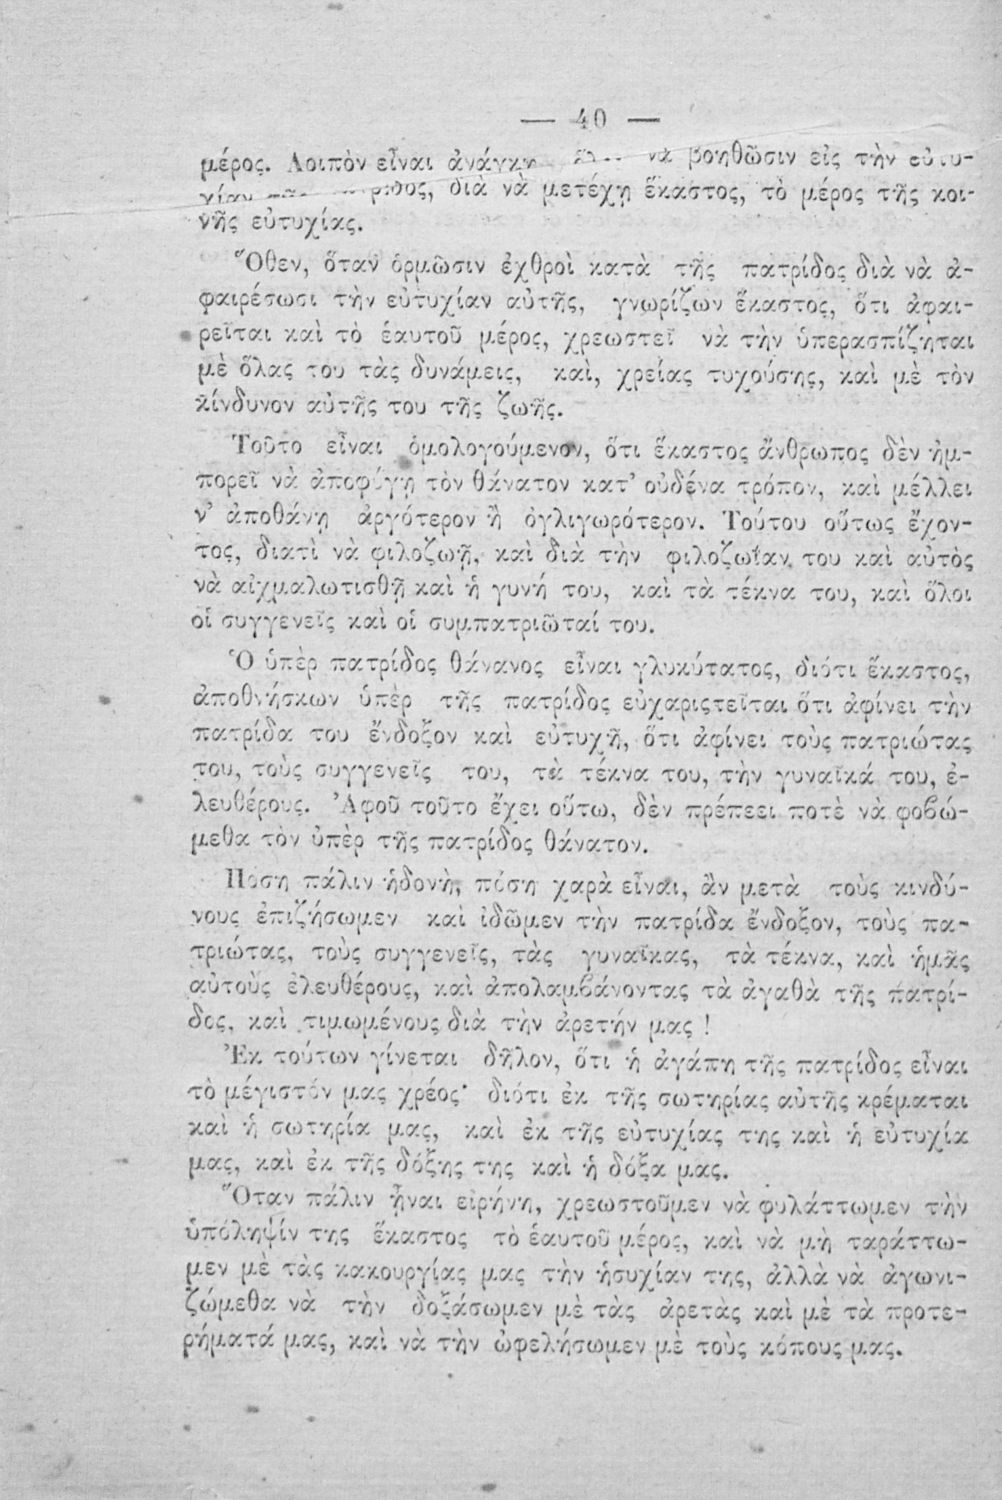 — 40 —
μέρος. Λοιπὸν εἶναι ἀνάγκη νὰ βοηθῶσιν εἰς τὴν εὐτυ-
χίαν τῆς διὰ νὰ μετέχῃ ἕκαστος, τὸ μέρος τῆς κοι-
νῆς εὐτυχίας.
Ὅθεν, ὅταν ὁρμῶσιν ἐχθροὶ κατὰ τῆς πατρίδος διὰ νὰ ἀ-
φαιρέσωσι τὴν εὐτυχίαν αὐτῆς, γνωρίζων ἕκαστος, ὅτι ἀφαι-
ρεῖται καὶ τὸ ἑαυτοῦ μέρος, χρεωστεῖ νὰ τὴν ὑπερασπίζηται
μὲ ὅλας του τὰς δυνάμεις, καὶ, χρείας τυχούσης, καὶ μὲ τὸν
κίνδυνον αὐτῆς του τῆς ζωῆς.
Τοῦτο εἶναι ὁμολογούμενον, ὅτι ἕκαστος ἄνθρωπος δὲν ἠμ-
πορεῖ νὰ ἀποφύγῃ τὸν θάνατον κατ’ οὐδένα τρόπον, καὶ μέλλει
ν’ ἀποθάνῃ ἀργότερον ἢ ὀγλιγωρότερον. Τούτου οὕτως ἔχον-
τος, διατὶ νὰ φιλοζωῇ, καὶ διὰ τὴν φιλοζωΐαν του καὶ αὐτὸς
νὰ αἰχμαλωτισθῇ καὶ ἡ γυνή του, καὶ τὰ τέκνα του, καὶ ὅλοι
οἱ συγγενεῖς καὶ οἱ συμπατριῶταί του.
Ὁ ὑπὲρ πατρίδος θάνανος εἶναι γλυκύτατος, διότι ἕκαστος,
ἀποθνήσκων ὑπὲρ τῆς πατρίδος εὐχαριστεῖται ὅτι ἀφίνει τὴν
πατρίδα του ἔνδοξον καὶ εὐτυχῆ, ὅτι ἀφίνει τοὺς πατριώτας
του, τοὺς συγγενεῖς του, τὰ τέκνα του, τὴν γυναῖκά του, ἐ-
λευθέρους. Ἀφοῦ τοῦτο ἔχει οὕτω, δὲν πρέπεει ποτὲ νὰ φοβώ-
μεθα τὸν ὑπὲρ τῆς πατρίδος θάνατον.
Πόση πάλιν ἡδονὴ, πόση χαρὰ εἶναι, ἂν μετὰ τοὺς κινδύ-
νους ἐπιζήσωμεν καὶ ἰδῶμεν τὴν πατρίδα ἔνδοξον, τοὺς πα-
τριώτας, τοὺς συγγενεῖς, τὰς γυναῖκας, τὰ τέκνα, καὶ ἡμᾶς
αὐτοὺς ἐλευθέρους, καὶ ἀπολαμβάνοντας τὰ ἀγαθὰ τῆς πατρί-
δος, καὶ τιμωμένους διὰ τὴν ἀρετήν μας !
Ἐκ τούτων γίνεται δῆλον, ὅτι ἡ ἀγάπη τῆς πατρίδος εἶναι
τὸ μέγιστόν μας χρέος· διότι ἐκ τῆς σωτηρίας αὐτῆς κρέμαται
καὶ ἡ σωτηρία μας, καὶ ἐκ τῆς εὐτυχίας της καὶ ἡ εὐτυχία
μας, καὶ ἐκ τῆς δόξης της καὶ ἡ δόξα μας.
Ὅταν πάλιν ἦναι εἰρήνη, χρεωστοῦμεν νὰ φυλάττωμεν τὴν
ὑπόληψίν της ἕκαστος τὸ ἑαυτοῦ μέρος, καὶ νὰ μὴ ταράττω-
μεν μὲ τὰς κακουργίας μας τὴν ἡσυχίαν της, ἀλλὰ νὰ ἀγωνι-
ζώμεθα νὰ τὴν δοξάσωμεν μὲ τὰς ἀρετὰς καὶ μὲ τὰ προτε-
ρήματά μας, καὶ νὰ τὴν ὠφελήσωμεν μὲ τοὺς κόπους μας.